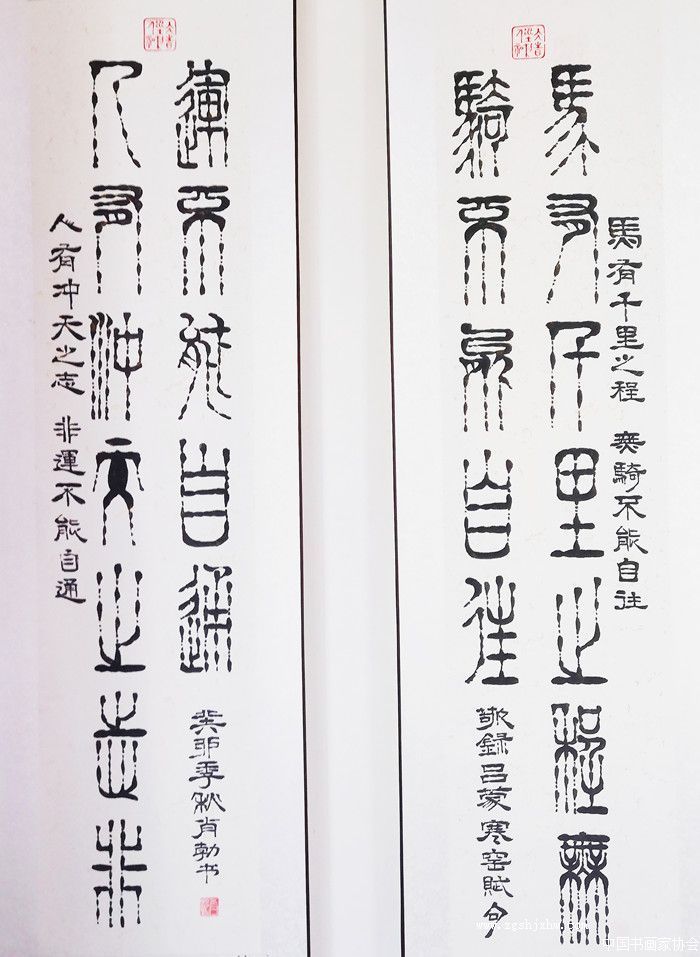 馬有千里之程 無騎不能自往
馬有千里之程無
騎不能自往
敬録吕蒙寒窑賦句
人有冲天之志 非運不能自通
人有冲天之志非
運不能自通
癸卯季秋肖勃书
中国书画家协会